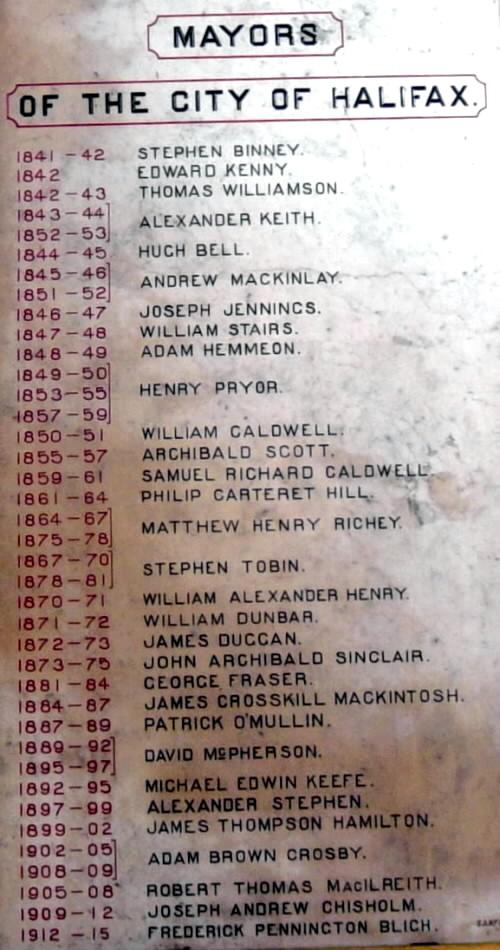 MAYORS
OF THE CITY OF HALIFAX.
1841-42 STEPHEN BINNEY.
1842 EDWARD KENNY.
1842-43 THOMAS WILLIAMSON.
1843-44
1852-53 ALEXANDER KEITH.
1844-45 HUGH BELL.
1845-46
1851-52 ANDREW MACKINLAY.
1846-47 JOSEPH JENNINGS.
1847-48 WILLIAM STAIRS.
1848-49 ADAM HEMMEON.
1849-50
1853-55 HENRY PRYOR.
1857-59
1850-51 WILLIAM CALDWELL.
1855-57 ARCHIBALD SCOTT.
1859-61 SAMUEL RICHARD CALDWELL.
1861-64 PHILIP CARTERET HILL.
1864-67
1875-78 MATTHEW HENRY RICHEY.
1867-70
1878-81 STEPHEN TOBIN.
1870-71 WILLIAM ALEXANDER HENRY.
1871-72 WILLIAM DUNBAR.
1872-73 JAMES DUGGAN.
1873-75 JOHN ARCHIBALD SINCLAIR.
1881-84 GEORGE FRASER.
1884-87 JAMES CROSSKILL MACKINTOSH.
1887-89 PATRICK O'MULLIN.
1889-92
1895-97 DAVID McPHERSON.
1892-95 MICHAEL EDWIN KEEFE.
1897-99 ALEXANDER STEPHEN.
1899-02 JAMES THOMPSON HAMILTON.
1902-05
1908-09 ADAM BROWN CROSBY.
1905-08 ROBERT THOMAS MacILREITH.
1909-12 JOSEPH ANDREW CHISHOLM.
1912-15 FREDERICK PENNINGTON BLIGH.